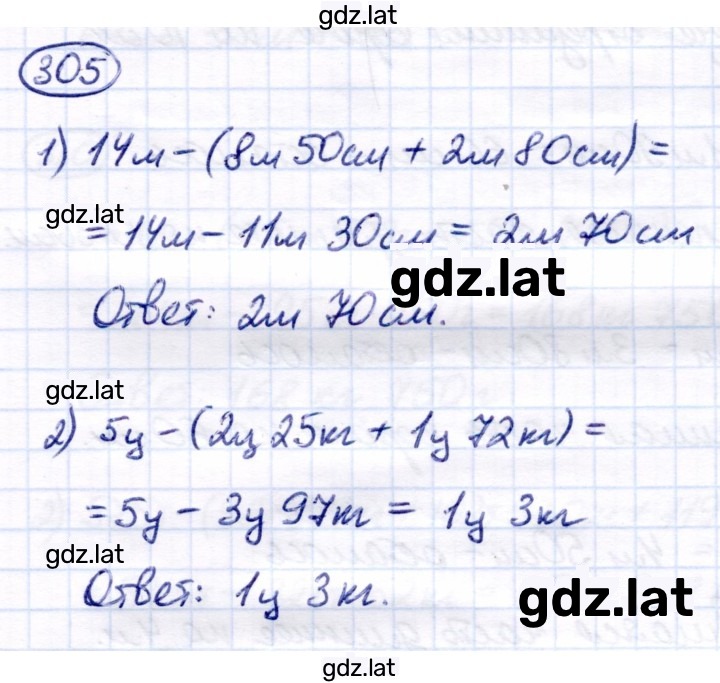 gdz.lat
305
1) 14м - (8м 50см + 2м 80см) =
gdz.lat
= 14м - 11м 30см = 2м 70см
gdz.lat
Ответ: 2м 70см.
gdz.lat
2) 5ц - (2ц 25кг + 1ц 72кг) =
= 5ц - 3ц 97кг = 1ц 3кг
gdz.lat
Ответ: 1ц 3кг.
gdz.lat
gdz.lat